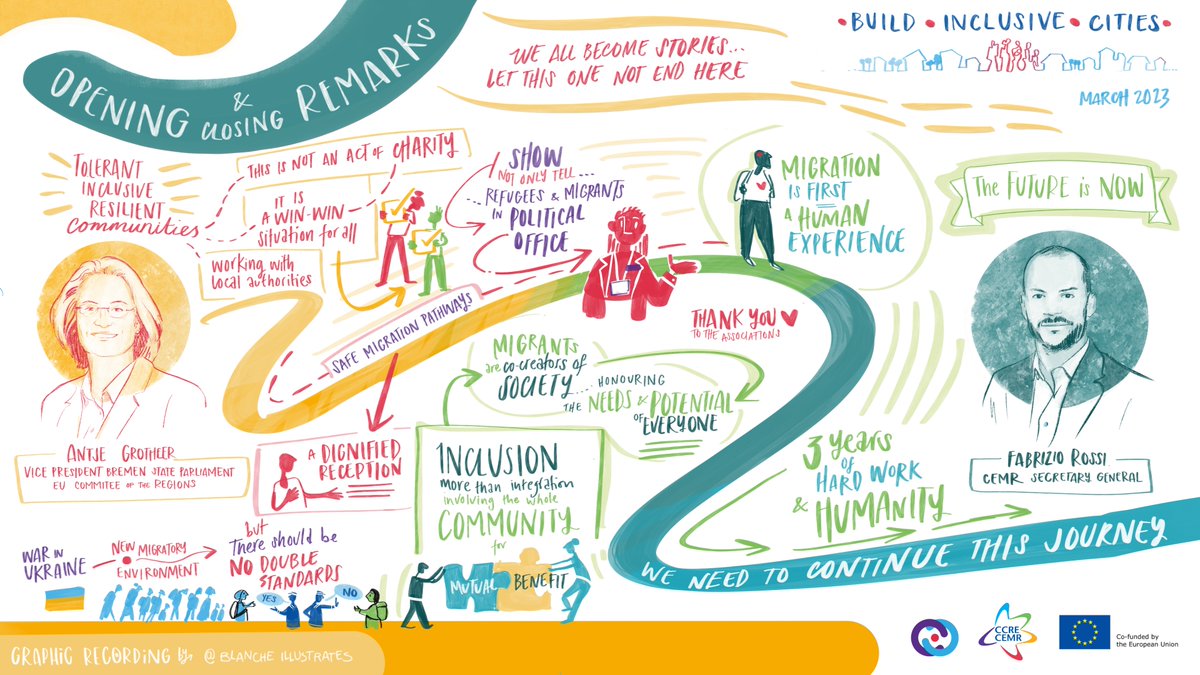 OPENING
&
CLOSING
REMARKS
WE ALL BECOME STORIES...
LET THIS ONE NOT END HERE
•BUILD•INCLUSIVE•CITIES•
MARCH 2023
TOLERANT
INCLUSIVE
RESILIENT
COMMUNITIES
THIS IS NOT AN ACT OF CHARITY
IT IS
A WIN-WIN
situation for all
working with
local authorities
SHOW
NOT ONLY TELL...
REFUGEES & MIGRANTS
IN POLITICAL
OFFICE
MIGRATION
IS FIRST
A HUMAN
EXPERIENCE
The FUTURE is NOW
SAFE MIGRATION PATHWAYS
THANK YOU
TO THE ASSOCIATIONS
MIGRANTS
are co-creators of
SOCIETY...
HONOURING
THE NEEDS & POTENTIAL
OF EVERYONE
ANTJE GROTHEER
VICE PRESIDENT BREMEN STATE PARLIAMENT
EU COMMITEE OF THE REGIONS
A DIGNIFIED
RECEPTION
INCLUSION
more than integration
involving the whole
COMMUNITY
for
MUTUAL
BENEFIT
3 years
OF
HARD WORK
& HUMANITY
FABRIZIO ROSSI
CEMR SECRETARY GENERAL
WAR IN
UKRAINE
NEW MIGRATORY
ENVIRONMENT
but
There should be
NO DOUBLE
STANDARDS
YES
NO
WE NEED TO CONTINUE THIS JOURNEY
GRAPHIC RECORDING by @BLANCHE ILLUSTRATES
CCRE
CEMR
Co-funded by
the European Union